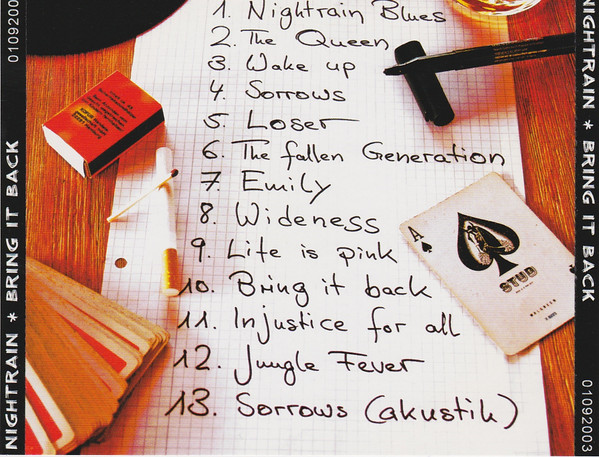 1. Nightrain Blues
2. The Queen
3. Wake up
4. Sorrows
5. Loser
6. The fallen Generation
7. Emily
8. Wideness
9. Life is pink
10. Bring it back
11. Injustice for all
12. Jungle Fever
13. Sorrows (akustik)
NIGHTRAIN * BRING IT BACK
01092003
NIGHTRAIN * BRING IT BACK
01092003
A
STUD